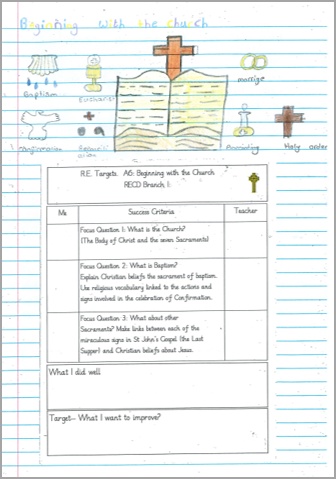 Beginning with the Church
marrige
Baptism
Eucharist
Confirmation
Anointing
Holy order
R.E. Targets. A6: Beginning with the Church
RECD Branch 1:
Me
Success Criteria
Teacher
Focus Question 1: What is the Church?
(The Body of Christ and the seven Sacraments)
Focus Question 2: What is Baptism?
Explain Christian beliefs the sacrament of baptism.
Use religious vocabulary linked to the actions and
signs involved in the celebration of Confirmation.
Focus Question 3: What about other
Sacraments? Make links between each of the
miraculous signs in St John's Gospel (the Last
Supper) and Christian beliefs about Jesus.
What I did well
Target– What I want to improve?